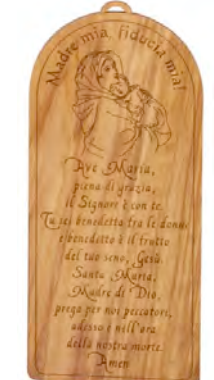 Madre mia, fiducia mia!
Ave Maria,
piena di grazia,
il Signore è con te.
Tu sei benedetta fra le donne
e benedetto è il frutto
del tuo seno, Gesù.
Santa Maria,
Madre di Dio,
prega per noi peccatori,
adesso e nell'ora
della nostra morte.
Amen